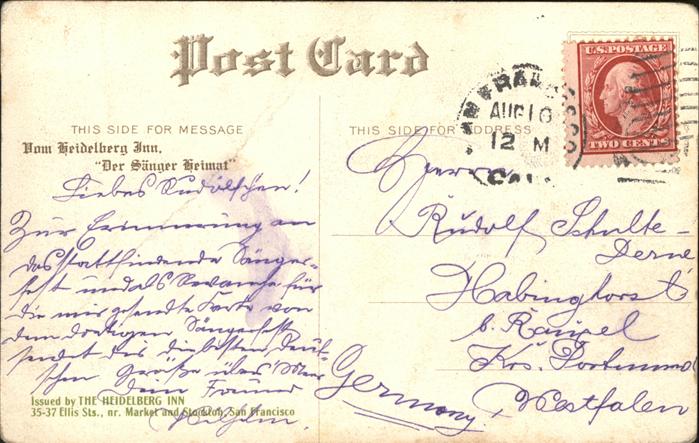 Post Card
THIS SIDE FOR MESSAGE
THIS SIDE FOR ADDRESS
Vom Heidelberg Inn,
"Der Sänger Heimat"
Liebes Rudölfchen!
Zur Erinnerung an
das stattfindende Sänger-
fest und als Revanche für
die mir gesandte Karte von
dem dortigen Sängerfest
sendet dir die besten deut-
schen Grüße übers Meer
dein Freund
Wilhelm.
Issued by THE HEIDELBERG INN
35-37 Ellis Sts., nr. Market and Stockton, San Francisco
U.S. POSTAGE
TWO CENTS
SAN FRANCISCO
AUG 10
12 M
CAL.
Herrn
Rudolf Schulte-
Derne
Habinghorst
b. Rauxel
Krs. Dortmund
Westfalen
Germany